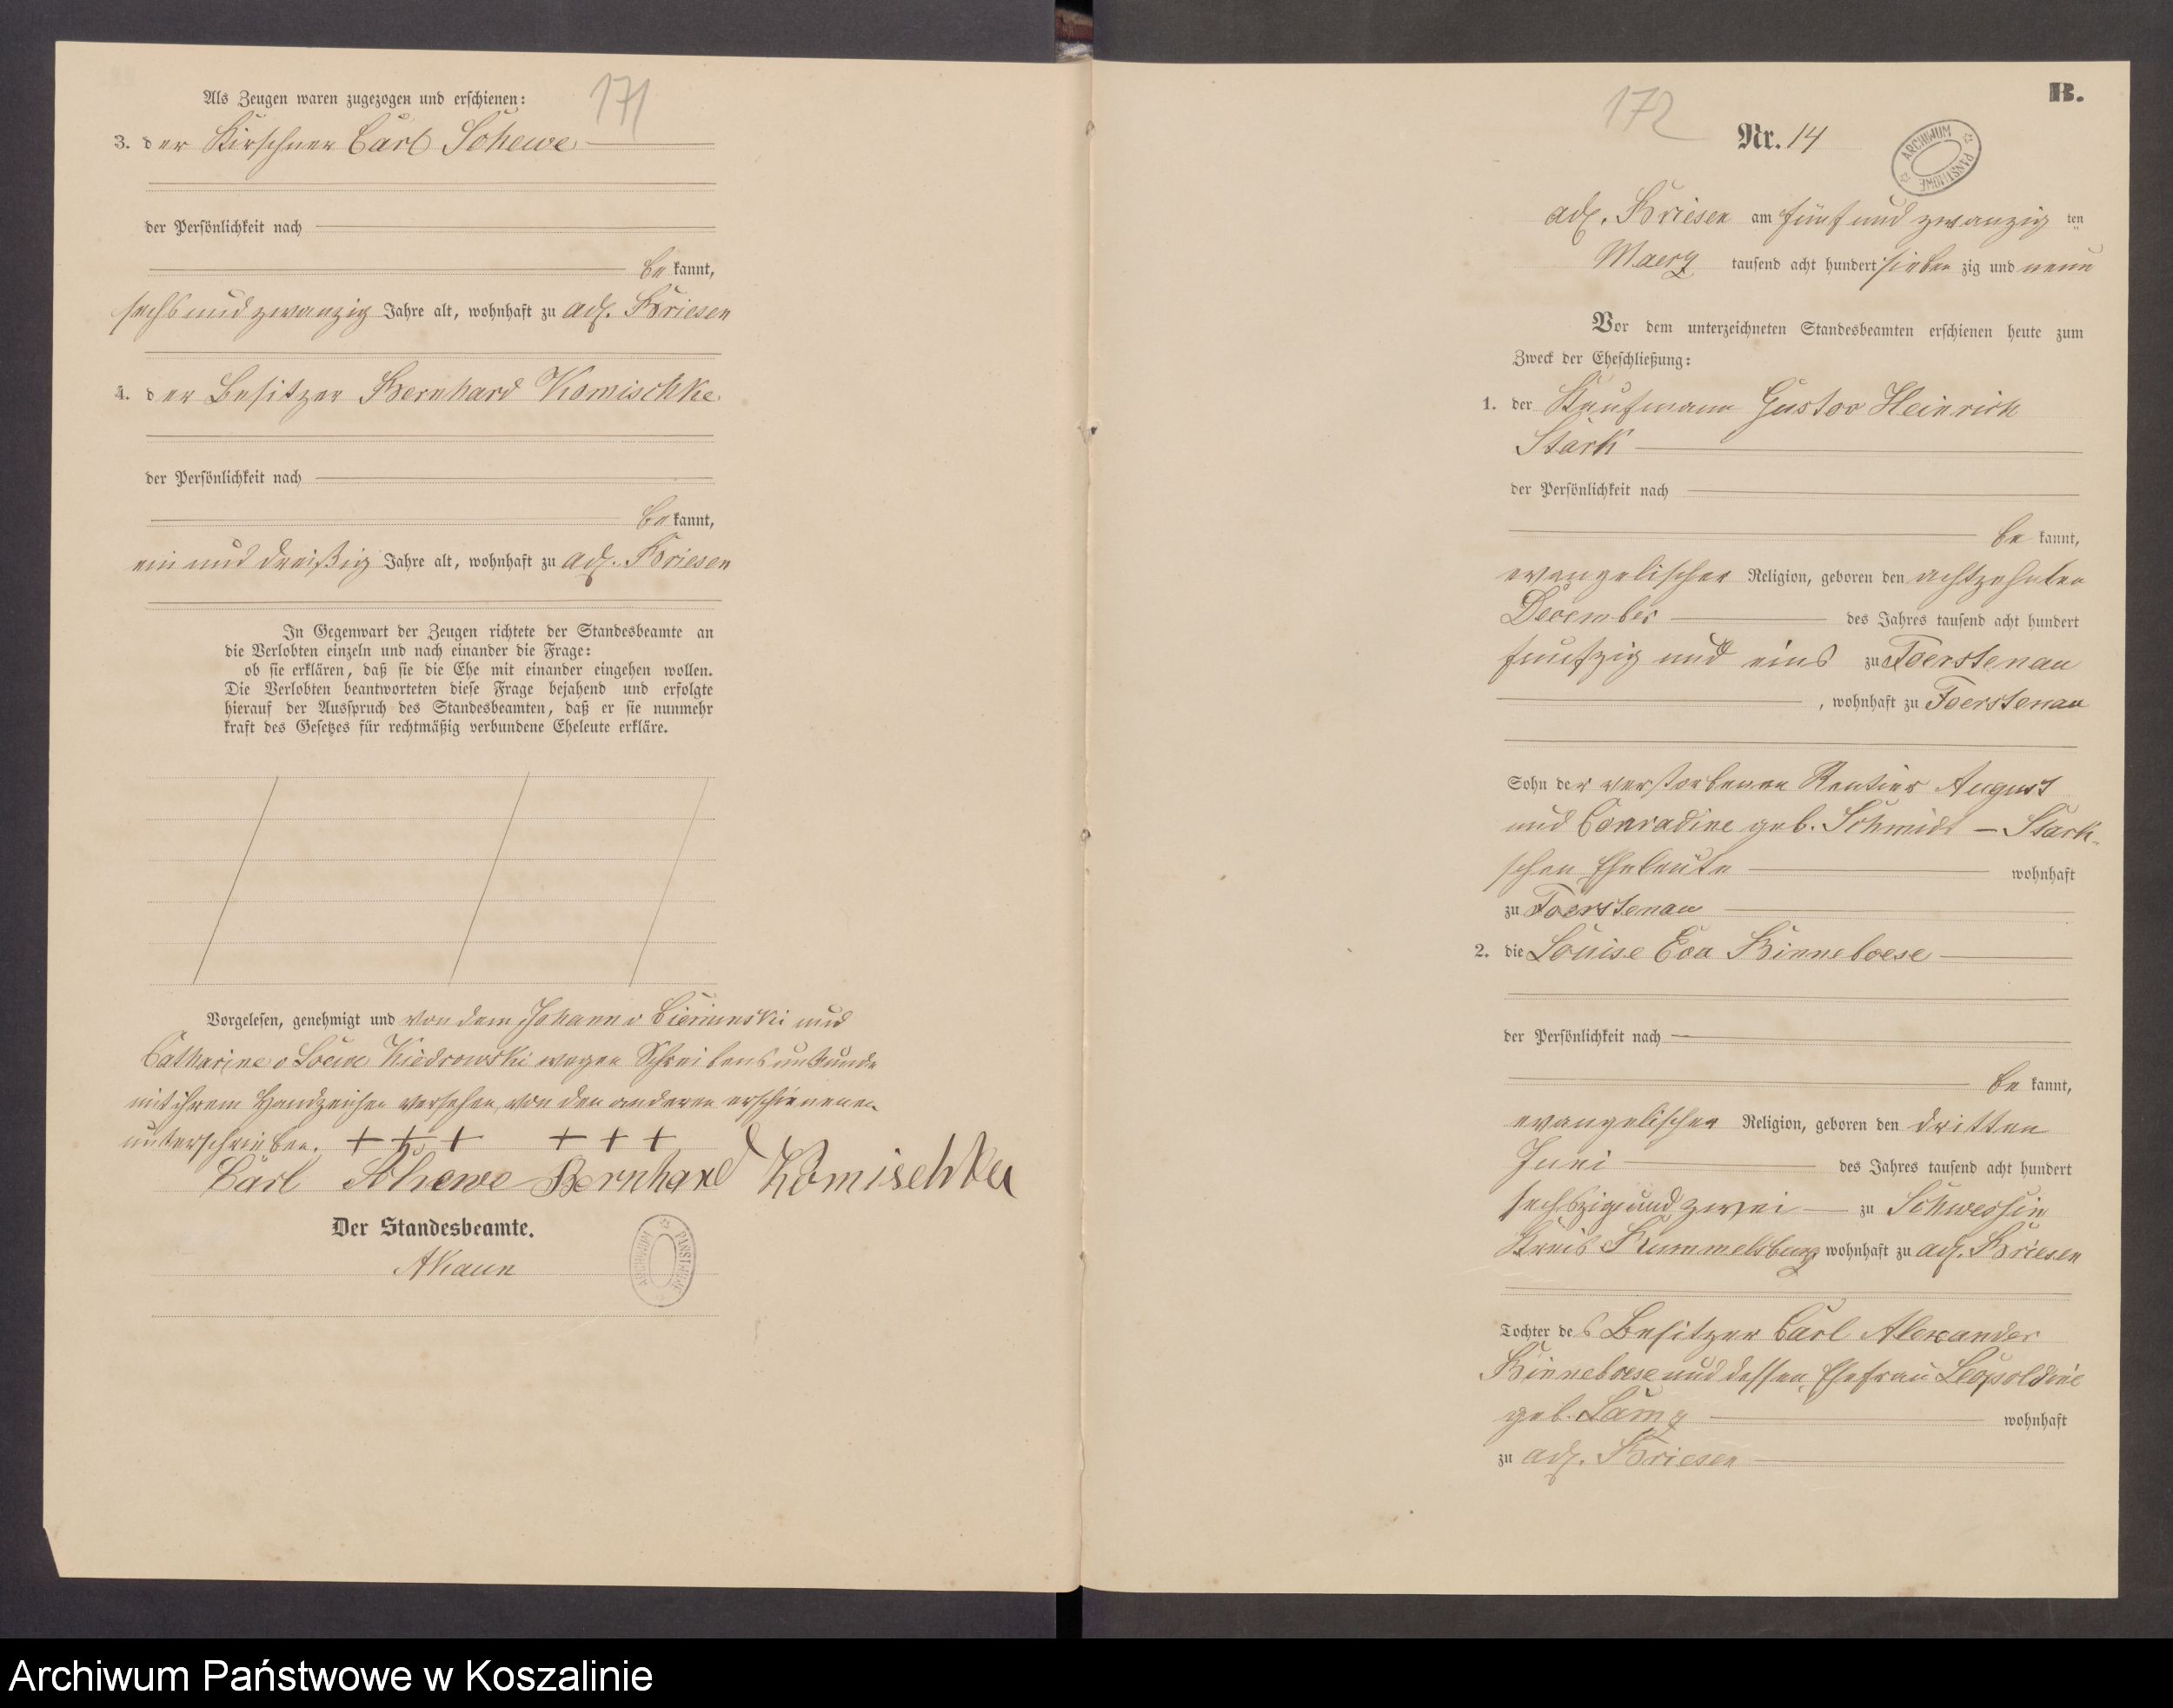 171
Als Zeugen waren zugezogen und erschienen:
3. der Kirschner Carl Schewe
der Persönlichkeit nach
bekannt,
sechs und zwanzig Jahre alt, wohnhaft zu adl. Briesen
4. der Besitzer Bernhard Komischke
der Persönlichkeit nach
bekannt,
ein und dreißig Jahre alt, wohnhaft zu adl. Briesen
In Gegenwart der Zeugen richtete der Standesbeamte an
die Verlobten einzeln und nach einander die Frage:
ob sie erklären, daß sie die Ehe mit einander eingehen wollen.
Die Verlobten beantworteten diese Frage bejahend und erfolgte
hierauf der Ausspruch des Standesbeamten, daß er sie nunmehr
kraft des Gesetzes für rechtmäßig verbundene Eheleute erkläre.
Vorgelesen, genehmigt und von dem Johann v und
Catharine v Loewe Kiedrowski wegen Schreibensunkunde
mit ihrem Handzeichen versehen, von den anderen erschienenen
unterschrieben. +++ +++
Carl Schewe Bernhard Komischke
Der Standesbeamte.
ARCHIWUM PAŃSTWOWE
172
B.
Nr. 14
ARCHIWUM PAŃSTWOWE
adl. Briesen am fünf und zwanzig ten
Maerz tausend acht hundert sieben zig und neun
Vor dem unterzeichneten Standesbeamten erschienen heute zum
Zweck der Eheschließung:
1. der Kaufmann Gustav Heinrich
Stark
der Persönlichkeit nach
be kannt,
evangelischer Religion, geboren den achtzehnten
December des Jahres tausend acht hundert
funfzig und eins zu Foerstenau
, wohnhaft zu Foerstenau
Sohn der verstorbenen Rentier August
und Conradine geb. Schmidt – Stark-
schen Eheleute wohnhaft
zu Foerstenau
2. die Louise Eva Binneboese
der Persönlichkeit nach
be kannt,
evangelischer Religion, geboren den dritten
Juni des Jahres tausend acht hundert
sechszig und zwei zu Schwessin
Kreis Rummelsburg wohnhaft zu adl. Briesen
Tochter des Besitzer Carl Alexander
Binneboese und dessen Ehefrau Leopoldine
geb. wohnhaft
zu adl. Briesen
Archiwum Państwowe w Koszalinie